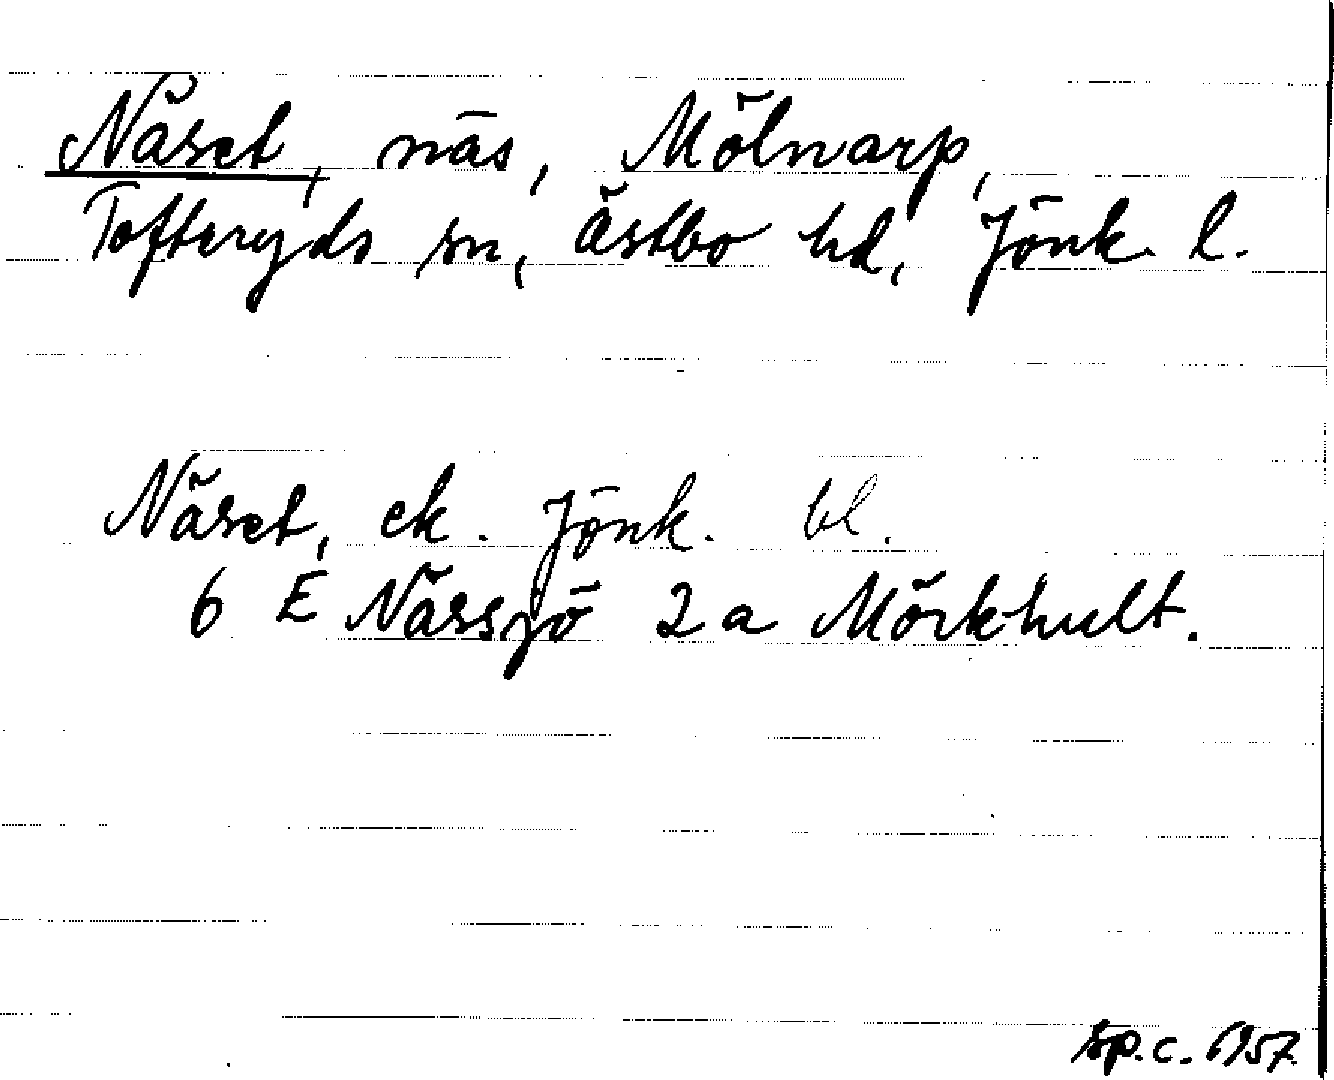 Näset, näs, Mölnarp,
Tofteryds sn, Östbo hd, Jönk. l.
Näset, ek. Jönk. bl.
6 E Nässjö 2 a Mörkhult.
sp.c. 1957